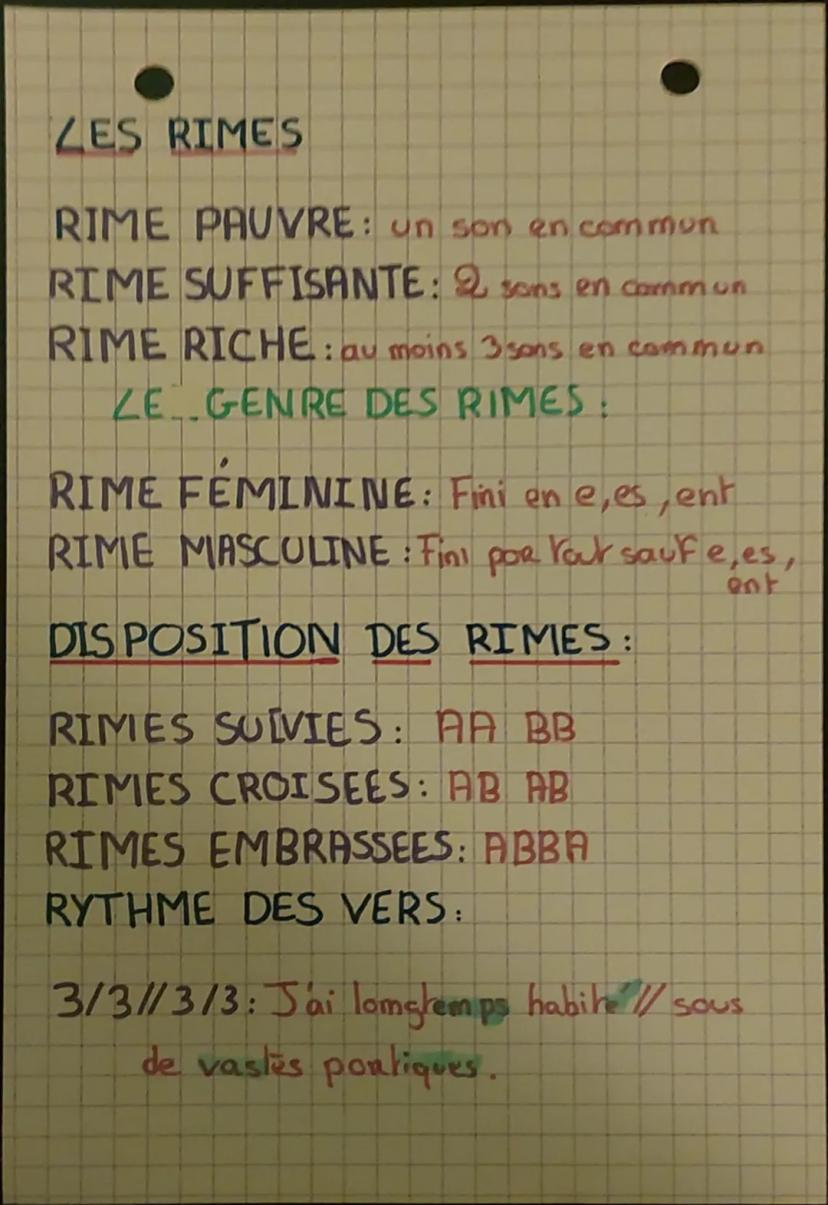 LES RIMES
RIME PAUVRE: un son en commun
RIME SUFFISANTE: 2 sons en commun
RIME RICHE: au moins 3 sons en commun
LE GENRE DES RIMES:
RIME FÉMININE: Fini en e, es, ent
RIME MASCULINE: Fini par tout sauf e, es,
ent
DISPOSITION DES RIMES:
RIMES SUIVIES: AA BB
RIMES CROISEES: AB AB
RIMES EMBRASSEES: ABBA
RYTHME DES VERS:
3/3//3/3: J'ai longtemps habité // sous
de vastes portiques.